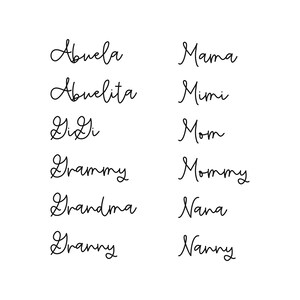 Abuela
Abuelita
GiGi
Grammy
Grandma
Granny
Mama
Mimi
Mom
Mommy
Nana
Nanny